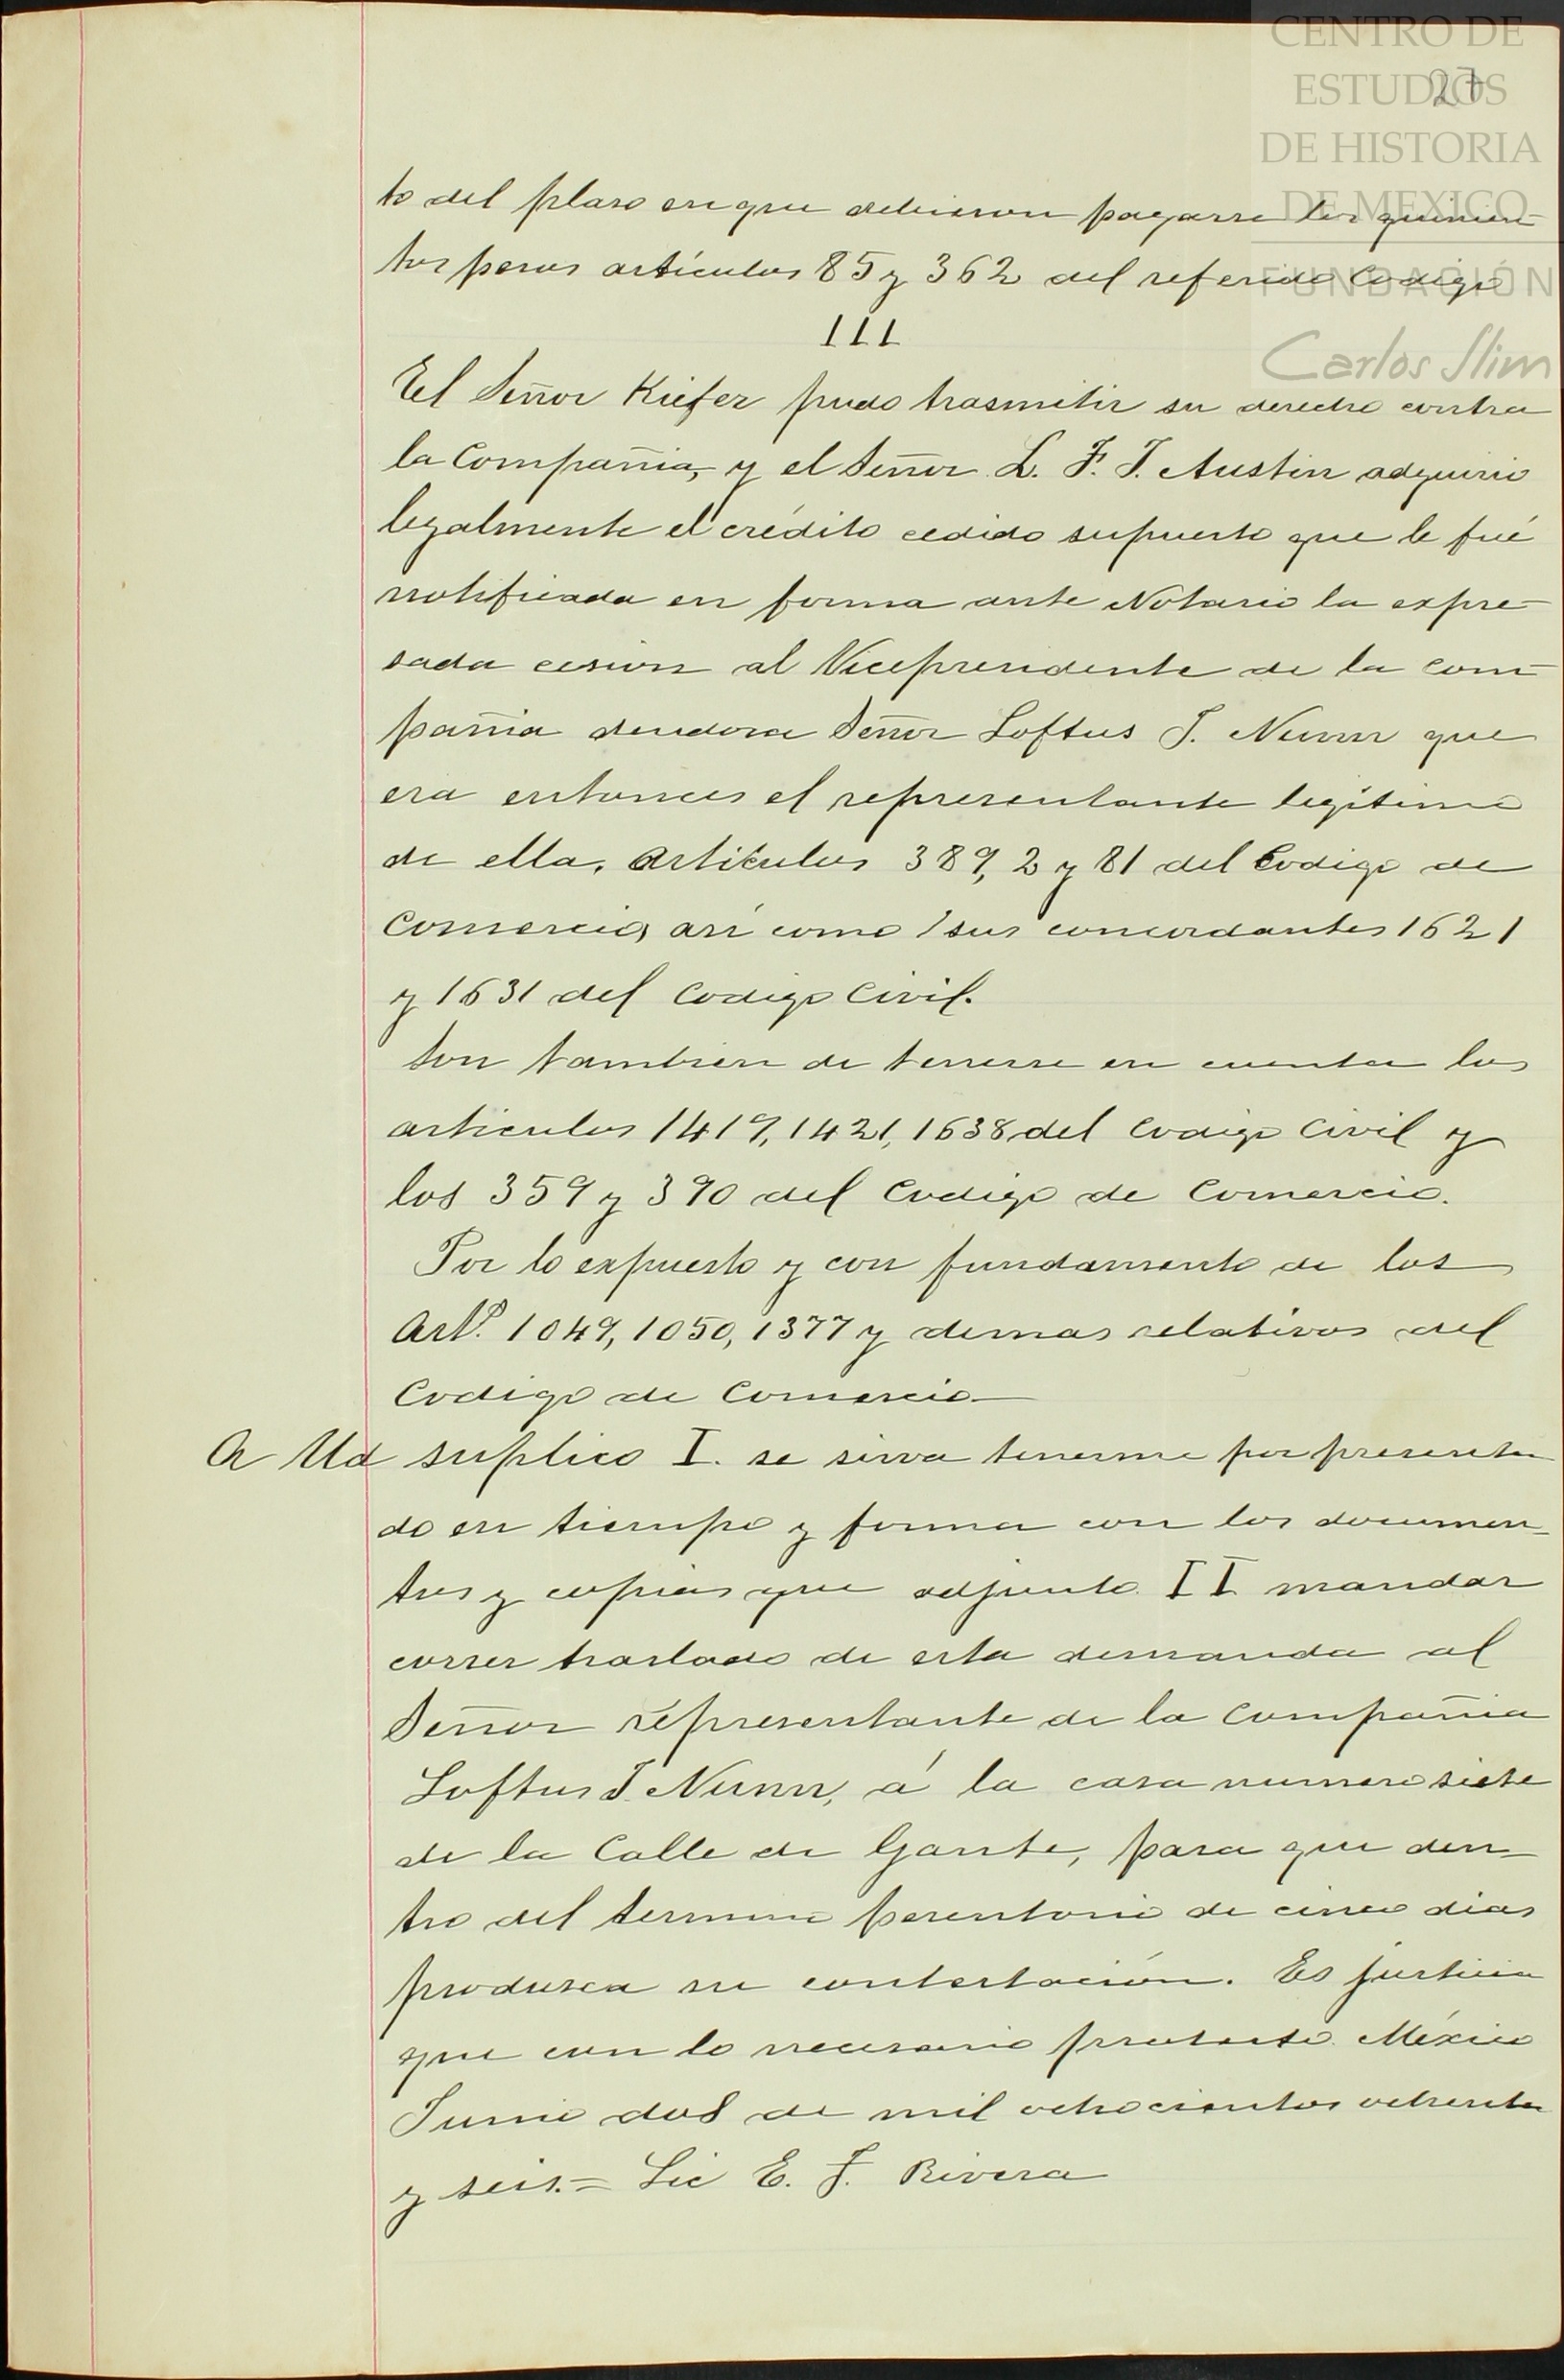 CENTRO DE
ESTUDIOS
DE HISTORIA
DE MEXICO
FUNDACIÓN
Carlos Slim
27
to del plaso en que debieron pagarse los quinien-
tos pesos artículos 85 y 362 del referido Codigo
III
El Señor Kiefer pudo trasmitir su derecho contra
la Compañia, y el Señor L. F. J. Austin adquirio
legalmente el crédito cedido supuesto que le fué
notificada en forma ante Notario la expre-
sada cesion al Vicepresidente de la com-
pañia deudora Señor Loftus J. Nunn que
era entonces el representante legítimo
de ella. Artículos 389, 2 y 81 del Codigo de
Comercio, así como sus concordantes 1621
y 1631 del Codigo Civil.
Son tambien de tenerse en cuenta los
articulos 1419, 1421, 1638 del Codigo Civil y
los 359 y 390 del Codigo de Comercio.
Por lo expuesto y con fundamento de los
Arts. 1049, 1050, 1377 y demas relativos del
Codigo de Comercio
A Ud suplico I. se sirva tenerme por presenta
do en tiempo y forma con los documen-
tos y copias que adjunto II mandar
correr traslado de esta demanda al
Señor representante de la Compañia
Loftus J. Nunn, á la casa numero siete
de la Calle de Gante, para que den-
tro del termino perentorio de cinco dias
produsca su contestación. Es justicia
que con lo necesario protesto. México
Junio dos de mil ochocientos ochenta
y seis.= Lic E. F. Rivera